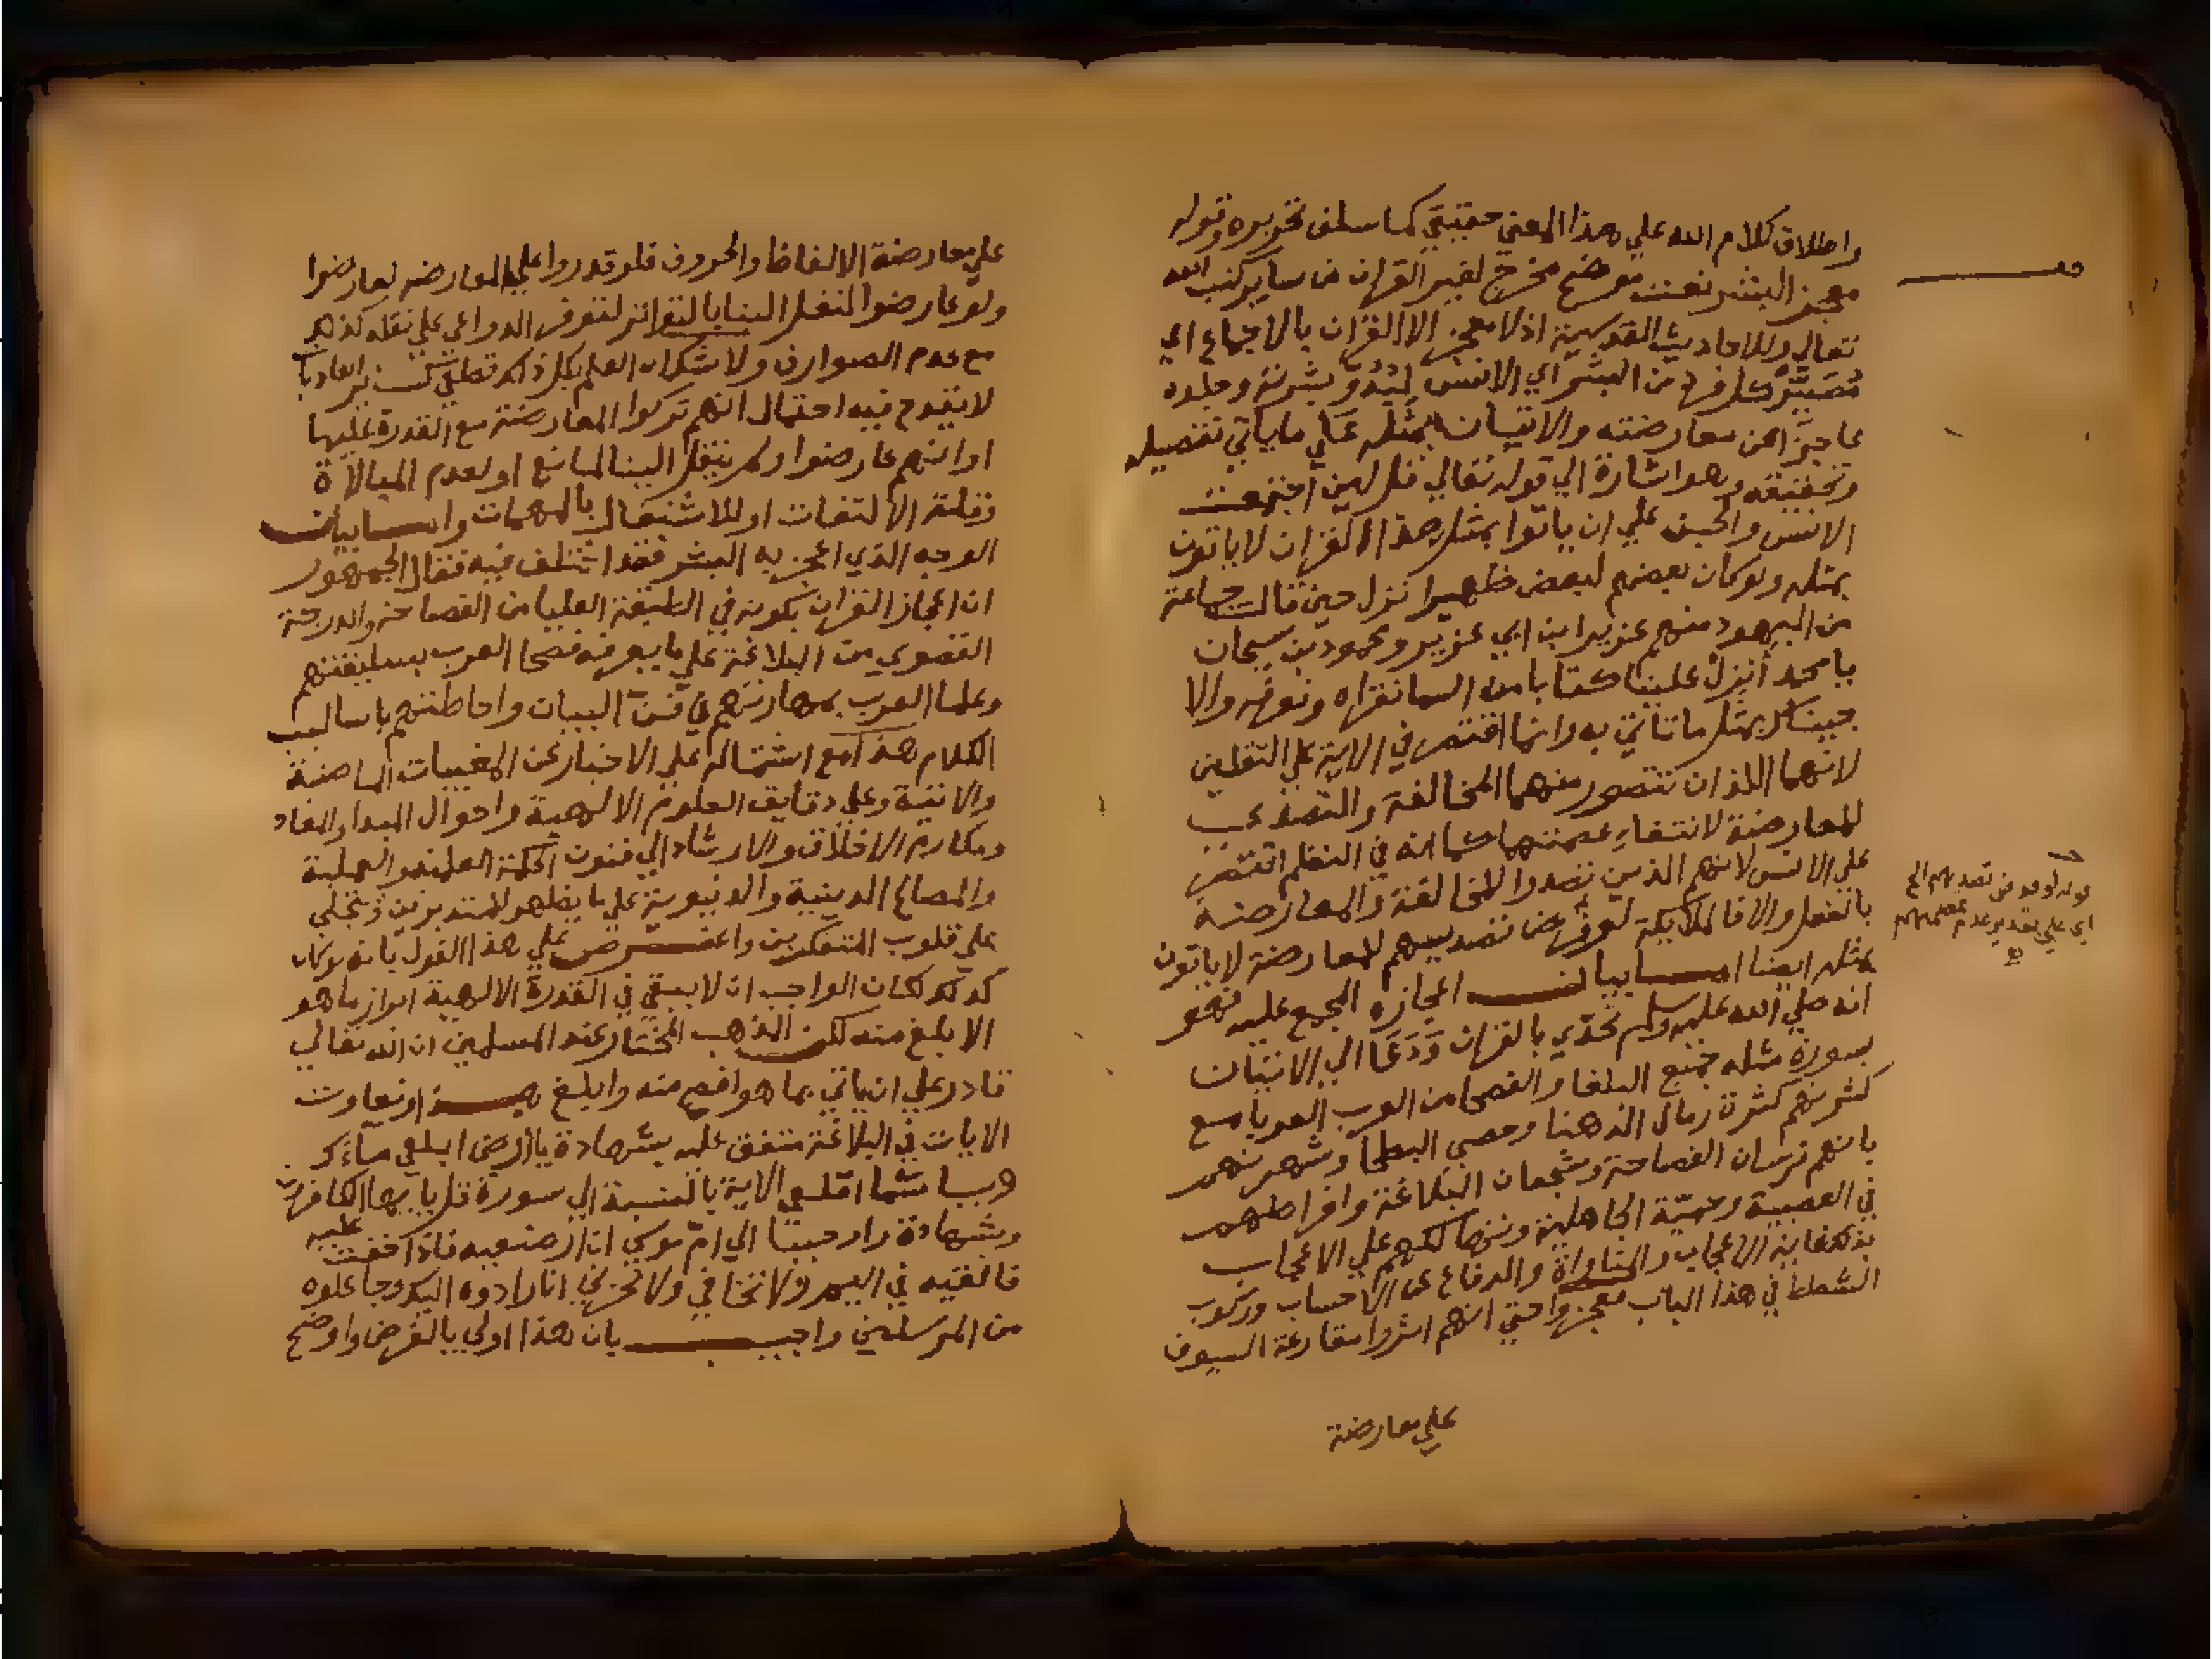 واطلاق كلام الله علي هذا المعني حقيقي كما سلف تحريره وقوله
معجز البشر نعت موضح مخرج لغير القران من ساير كتب الله
تعالي وللاحاديث القدسية اذ لا معجز الا القران بالاجماع اي
مصير كل فرد من البشر اي الانس لبدو بشرته وجلده
عاجزا عن معارضته والاتيان بمثله علي ما ياتي تفصيله
وتحقيقه وهو اشارة الي قوله تعالي قل لين اجتمعت
الانس والجن علي ان ياتوا بمثل هذا القران لا ياتون
بمثله ولو كان بعضهم لبعض ظهيرا نزل حين قالت جماعة
من اليهود منهم عزير ابن ابي عزير ومحمود بن سبحان
يا محمد أنزل علينا كتابا من السما نقراه ونعرفه والا
جيناك بمثل ما تاتي به وانما اقتصر في الاية علي الثقلين
لانهما اللذان تتصور منهما المخالفة والتصدي
للمعارضة لانتفاء عصمتهما كما انه في النظم اقتصر
علي الانس لانهم الذين تصدوا للمخالفة والمعارضة
بالفعل والا فالملايكة لو فرض تصديهم للمعارضة لا ياتون
بمثله ايضا اما بيان اعجازه المجمع عليه فهو
انه صلي الله عليه وسلم تحدي بالقران وَدَعَا الي الاتيان
بسورة مثله جميع البلغا والفصحا من العرب العربا مع
كثرتهم كثرة رمال الدهنا وحصي البطحا وشهرتهم
بانهم فرسان الفصاحة وشجعان البلاغة وافراطهم
في العصبية وحميّة الجاهلية وتهالكهم علي الاعجاب
بذلك غاية الاعجاب والمناواة والدفاع عن الاحساب وركوب
الشطط في هذا الباب فعجزوا حتي انهم اثروا مقارعة السيوف
علي معارضة
قوله لو فرض تصديهم الخ
اي علي تقدير عدم عصمتهم
علي معارضة الالفاظ والحروف فلو قدروا علي المعارضه لعارضوا
ولو عارضوا لنقل الينا بالتواتر لتوفر الدواعي علي نقله كغيره
مع عدم الصوارف ولا شك ان العلم بكل ذلك قطعي كساير العاديات
لا يقدح فيه احتمال انهم تركوا المعارضة مع القدرة عليها
او انهم عارضوا ولم ينقل الينا لمانع او لعدم المبالاة
وقلة الالتفات او للاشتغال بالمهمات واما بيان
الوجه الذي اعجز به البشر فقد اختلف فيه فقال الجمهور
ان اعجاز القران بكونه في الطبقة العليا من الفصاحة والدرجة
القصوي من البلاغة علي ما يعرفه فصحا العرب بسليقتهم
وعلما العرب بمهارتهم في فنّ البيان واحاطتهم باساليب
الكلام هذا مع اشتماله علي الاخبار عن المغيبات الماضية
والاتية وعلي دقايق العلوم الالهية واحوال المبدا والمعاد
ومكارم الاخلاق والارشاد الي فنون الحكمة العلمية والعملية
والمصالح الدينية والدنيوية علي ما يظهر للمتدبرين ويتجلي
علي قلوب المتفكرين واعترض علي هذا القول بانه لو كان
كذلك لكان الواجب ان لا يبقي في القدرة الالهية ابراز ما هو
الابلغ منه لكن المذهب المختار عند المسلمين ان الله تعالي
قادر علي ان ياتي بما هو افصح منه وابلغ هذا وتفاوت
الايات في البلاغة متفق عليه بشهادة يا ارض ابلعي ماءك
ويا سما اقلعي الاية بالنسبة الي سورة قل يايها الكافرون
وبشهادة واوحينا الي امّ موسي ان ارضعيه فاذا خفت عليه
فالقيه في اليم ولا تخافي ولا تحزني انا رادوه اليك وجاعلوه
من المرسلين واجيب بان هذا اولي بالغرض واوضح